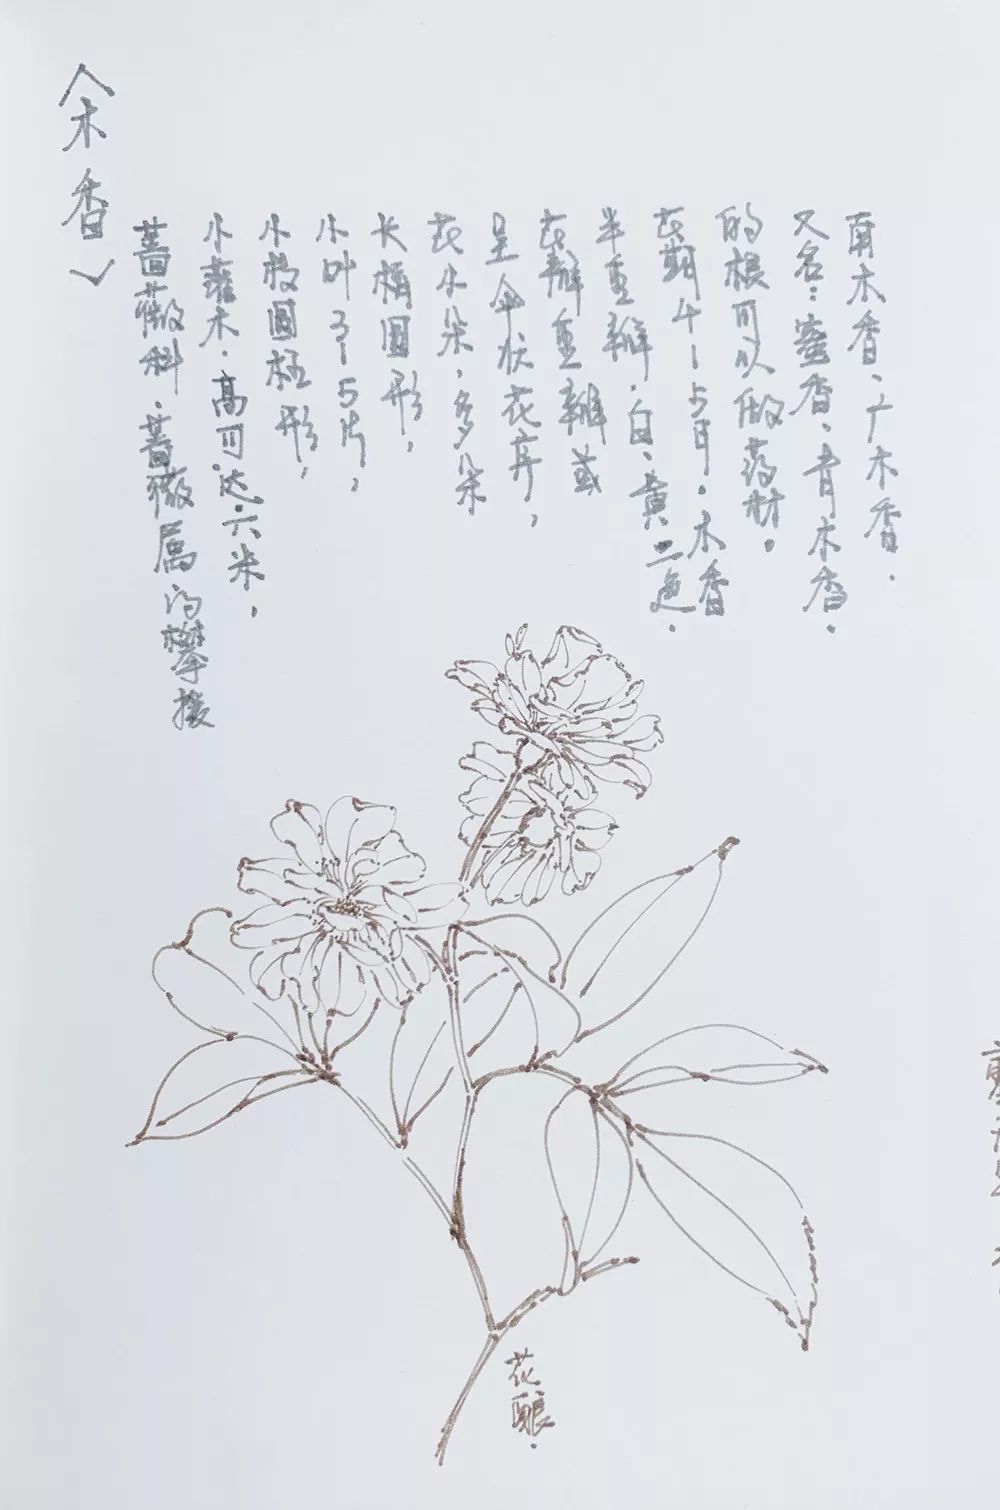 《木香》
蔷薇科.蔷薇属的攀援
小灌木.高可达六米,
小枝圆柱形,
小叶3-5片,
长椭圆形,
花小朵,多朵
呈伞状花序,
花瓣重瓣或
半重瓣.白、黄二色.
花期4-5月.木香
的根可以做药材.
又名:蜜香、青木香.
南木香、广木香.
花酿.